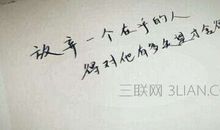 放弃一个在乎的人
得对他有多失望才会
三联网 3LIAN.C